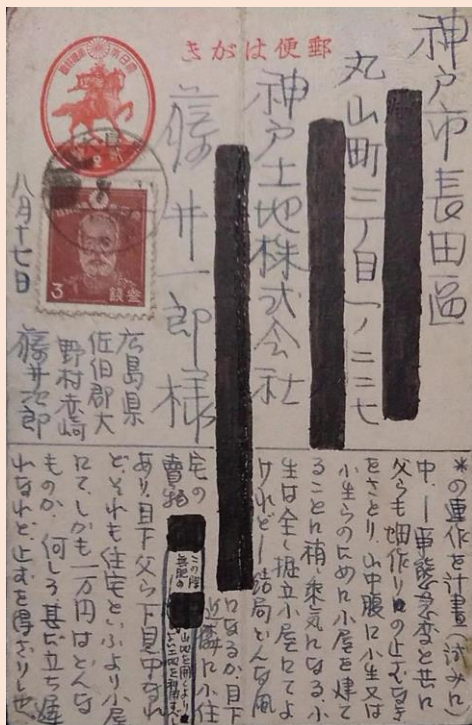 郵便はがき
神戸市長田區
丸山町三丁目一ノ二三七
神戸土地株式会社
藤井一郎様
八月十七日
3
参銭
広島県
佐伯郡大
野村赤崎
藤井次郎
*の連作を計畫(試みに)
中、一事態急変と共に
父らも畑作りの止むなき
をさとり、山中腹に小生又は
小生らのために小屋を建て
ることに稍〻乗気になる、小
生は全く掘立小屋にてよ
けれど一結局どんな風
になるか、目下
近隣に小住
宅の
賣物
あり、目下父ら下見中なれ
ど、それも住宅といふより小屋
にて、しかも一万円はどんな
ものか、何しろ甚だ立ち遅
れなれど、止むを得ざりし也